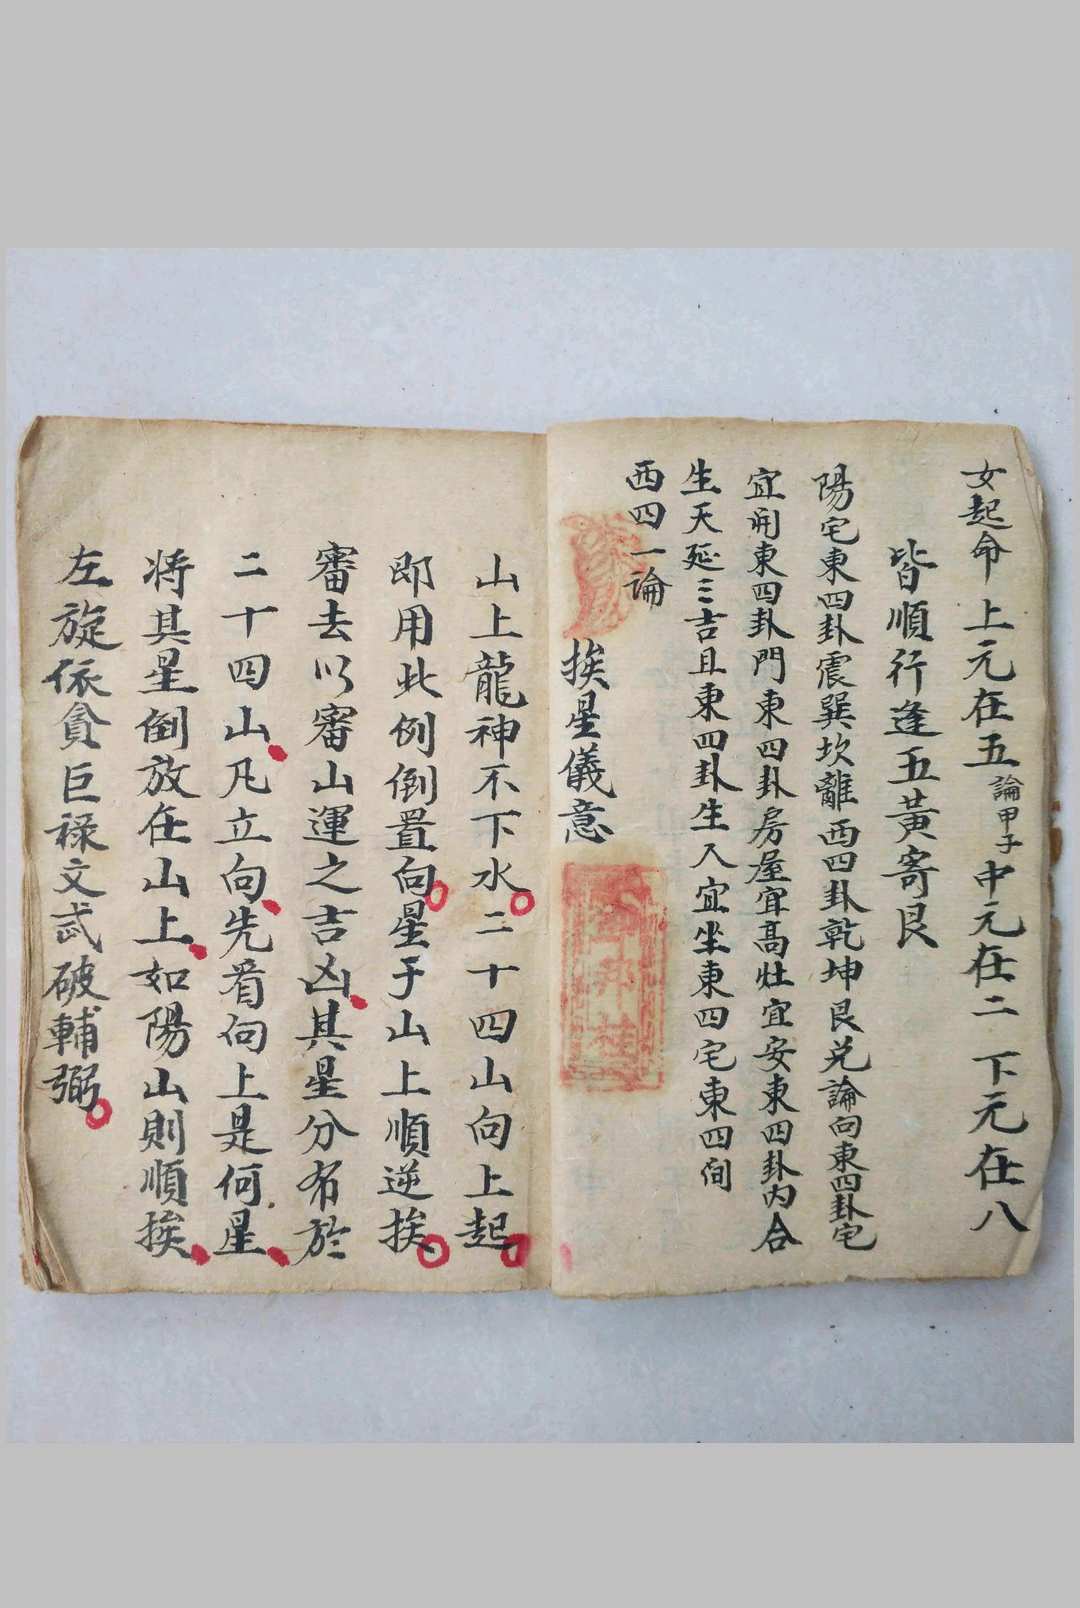 女起命 上元在五 論甲子 中元在二 下元在八
皆順行逢五黃寄艮
陽宅東四卦震巽坎離西四卦乾坤艮兑論向東四卦宅
宜開東四卦門東四卦房屋宜高灶宜安東四卦内合
生天延三吉且東四卦生人宜坐東四宅東四間
西四一論
挨星儀意
山上龍神不下水二十四山向上起
即用此例倒置向星于山上順逆挨
審去以審山運之吉凶其星分布於
二十四山凡立向先看向上是何星
将其星倒放在山上如陽山則順挨
左旋依貪巨禄文武破輔弼